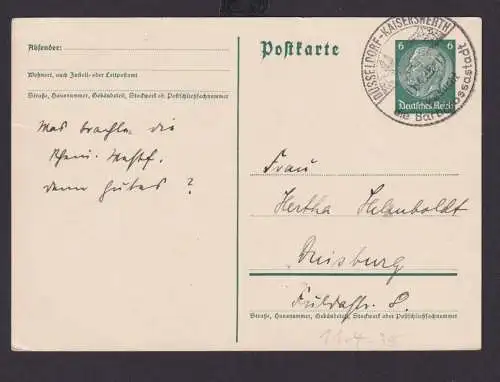 Absender:
Wohnort, auch Zustell- oder Leitpostamt
Straße, Hausnummer, Gebäudeteil, Stockwerk od. Postschließfachnummer
Was brachte die
Rhein. Westf.
denn Gutes ?
Postkarte
DÜSSELDORF-KAISERSWERTH
die Barbarossastadt
6 6
Deutsches Reich
Frau
Hertha Helmboldt
Duisburg
Fuldastr. 8.
Straße, Hausnummer, Gebäudeteil, Stockwerk oder Postschließfachnummer